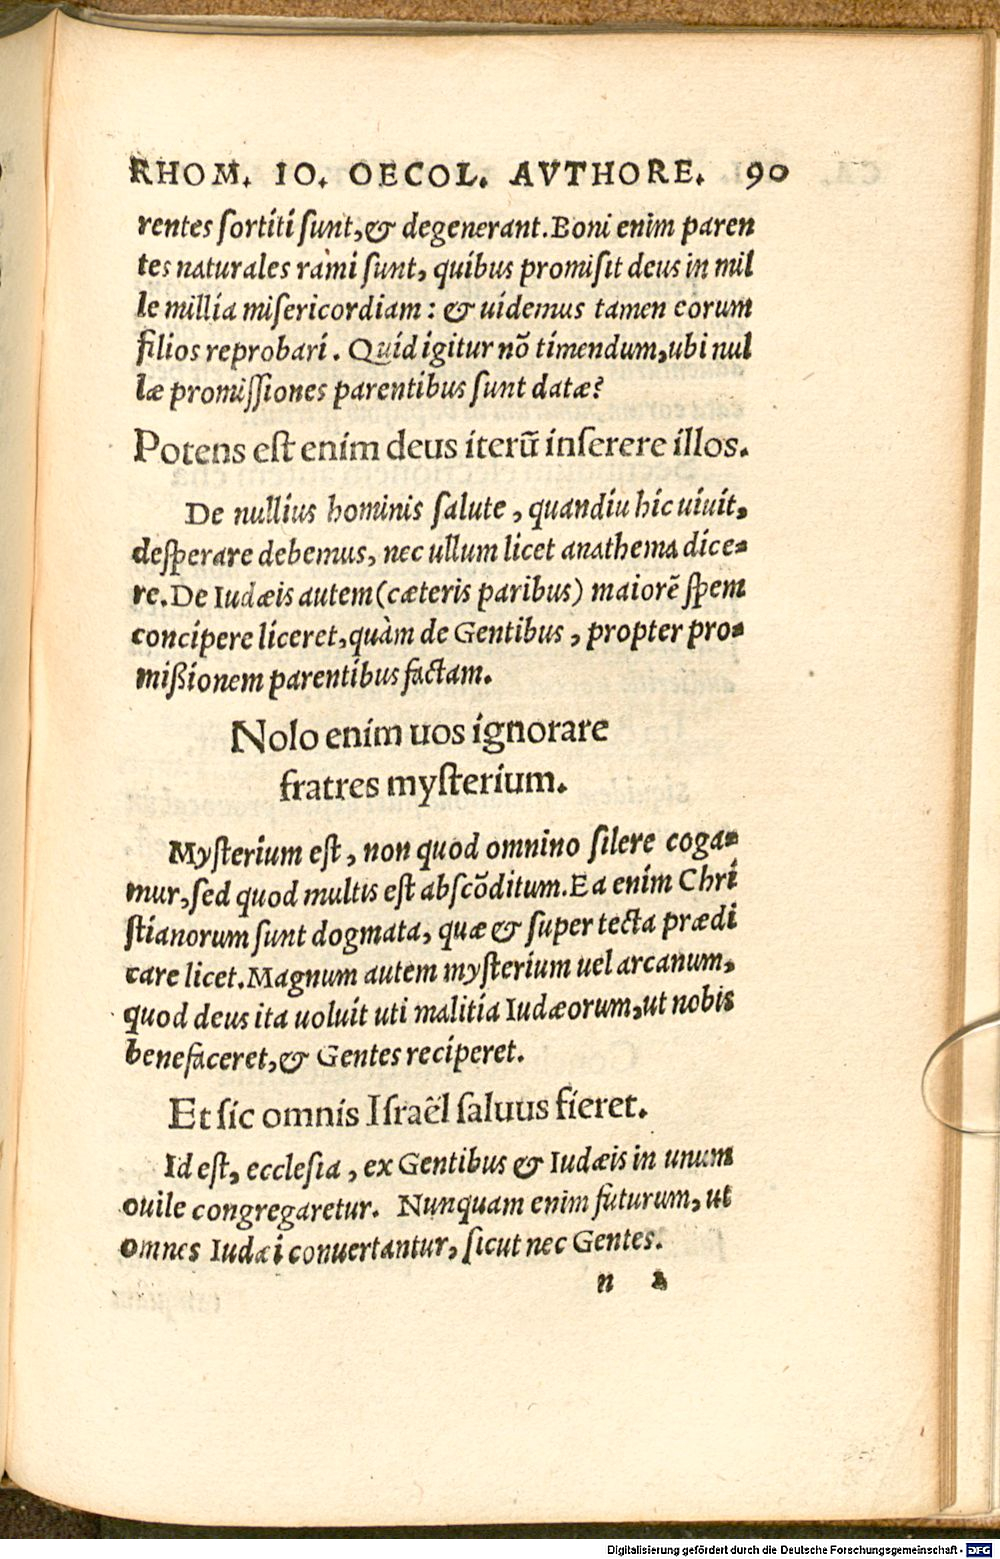 RHOM. IO. OECOL. AVTHORE. 90
rentes ſortiti ſunt, & degenerant. Boni enim paren
tes naturales rami ſunt, quibus promiſit deus in mil
le millia miſericordiam: & uidemus tamen eorum
filios reprobari. Quid igitur nõ timendum, ubi nul
læ promiſſiones parentibus ſunt datæ?
Potens eſt enim deus iterũ inſerere illos.
De nullius hominis ſalute, quandiu hic uiuit,
deſperare debemus, nec ullum licet anathema dice-
re. De Iudæis autem (cæteris paribus) maiorẽ ſpem
concipere liceret, quàm de Gentibus, propter pro-
mißionem parentibus factam.
Nolo enim uos ignorare
fratres myſterium.
Myſterium eſt, non quod omnino ſilere coga-
mur, ſed quod multis eſt abſcõditum. Ea enim Chri
ſtianorum ſunt dogmata, quæ & ſuper tecta prædi
care licet. Magnum autem myſterium uel arcanum,
quod deus ita uoluit uti malitia Iudæorum, ut nobis
benefaceret, & Gentes reciperet.
Et ſic omnis Iſraël ſaluus fieret.
Id eſt, eccleſia, ex Gentibus & Iudæis in unum
ouile congregaretur. Nunquam enim futurum, ut
omnes Iudæi conuertantur, ſicut nec Gentes.
n
Digitalisierung gefördert durch die Deutsche Forschungsgemeinschaft - DFG